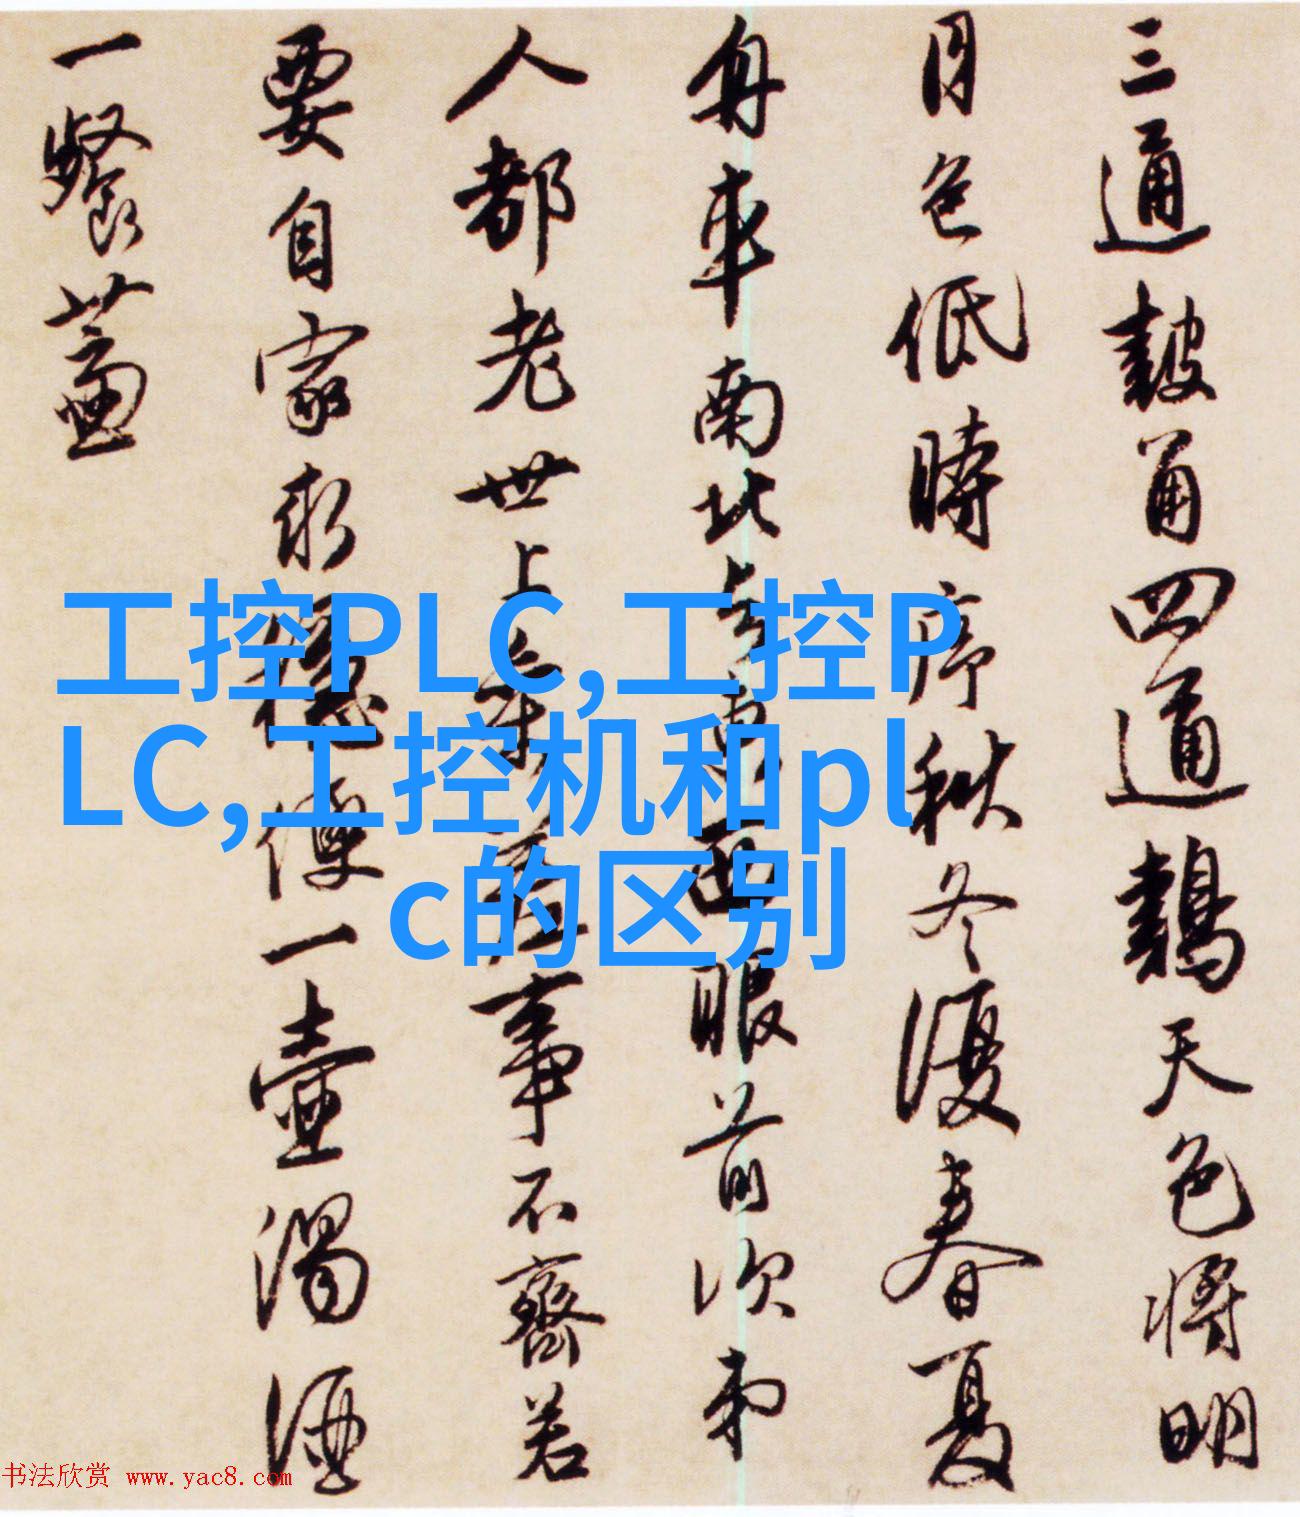 三通皷角四通鷄天色將明
月色低時序秋冬復春夏
舟車南北与東西眼前次第
人都老世上參差事不齊若
要自家求穩便一壺濁酒
一餐虀
工控PLC,工控P
LC,工控机和pl
c的区别
书法欣赏 www.yac8.com